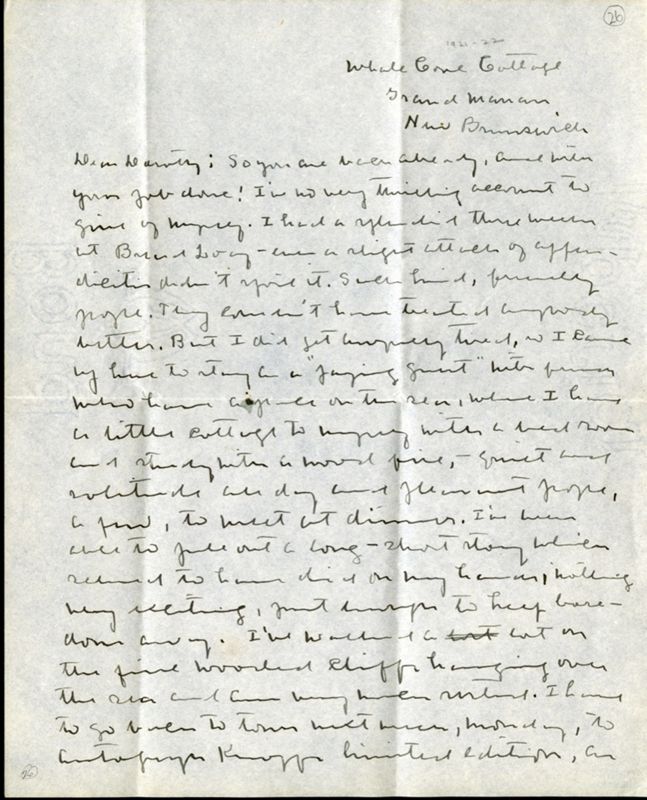 26
1921-22
Whale Cove Cottage
Grand Manan
New Brunswick
Dear Dorothy: So you are back already, and with
your job done! I've no very thrilling account to
give of myself. I had a splendid three weeks
at Bread Loaf - even a slight attack of appen-
dicitis didn't spoil it. Such kind, friendly
people. They couldn't have treated anybody
better. But I did get awfully tired, so I came
up here to stay as a "paying guest" with friends
who have a place on the sea, where I have
a little cottage to myself with a bed room
and study with a wood fire, - quiet and
solitude all day and pleasant people,
a few, to meet at dinner. I've been
able to pull out a long-short story which
seemed to have died on my hands; nothing
very exciting, just enough to keep bore-
dom away. I've walked a lot on
the fine wooded cliffs hanging over
the sea and am very much rested. I have
to go back to town next week, Monday, to
autograph Knopf's limited edition, an
26